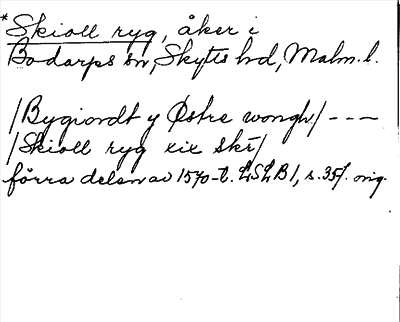 *Skioll ryg, åker i
Bodarps sn, Skytts hd, Malm. l.
/Bygiordt y Østre wongh/ - - -
/Skioll ryg xix skr/
förra delen av 1570-t. LSLB 1, s. 35/. orig.